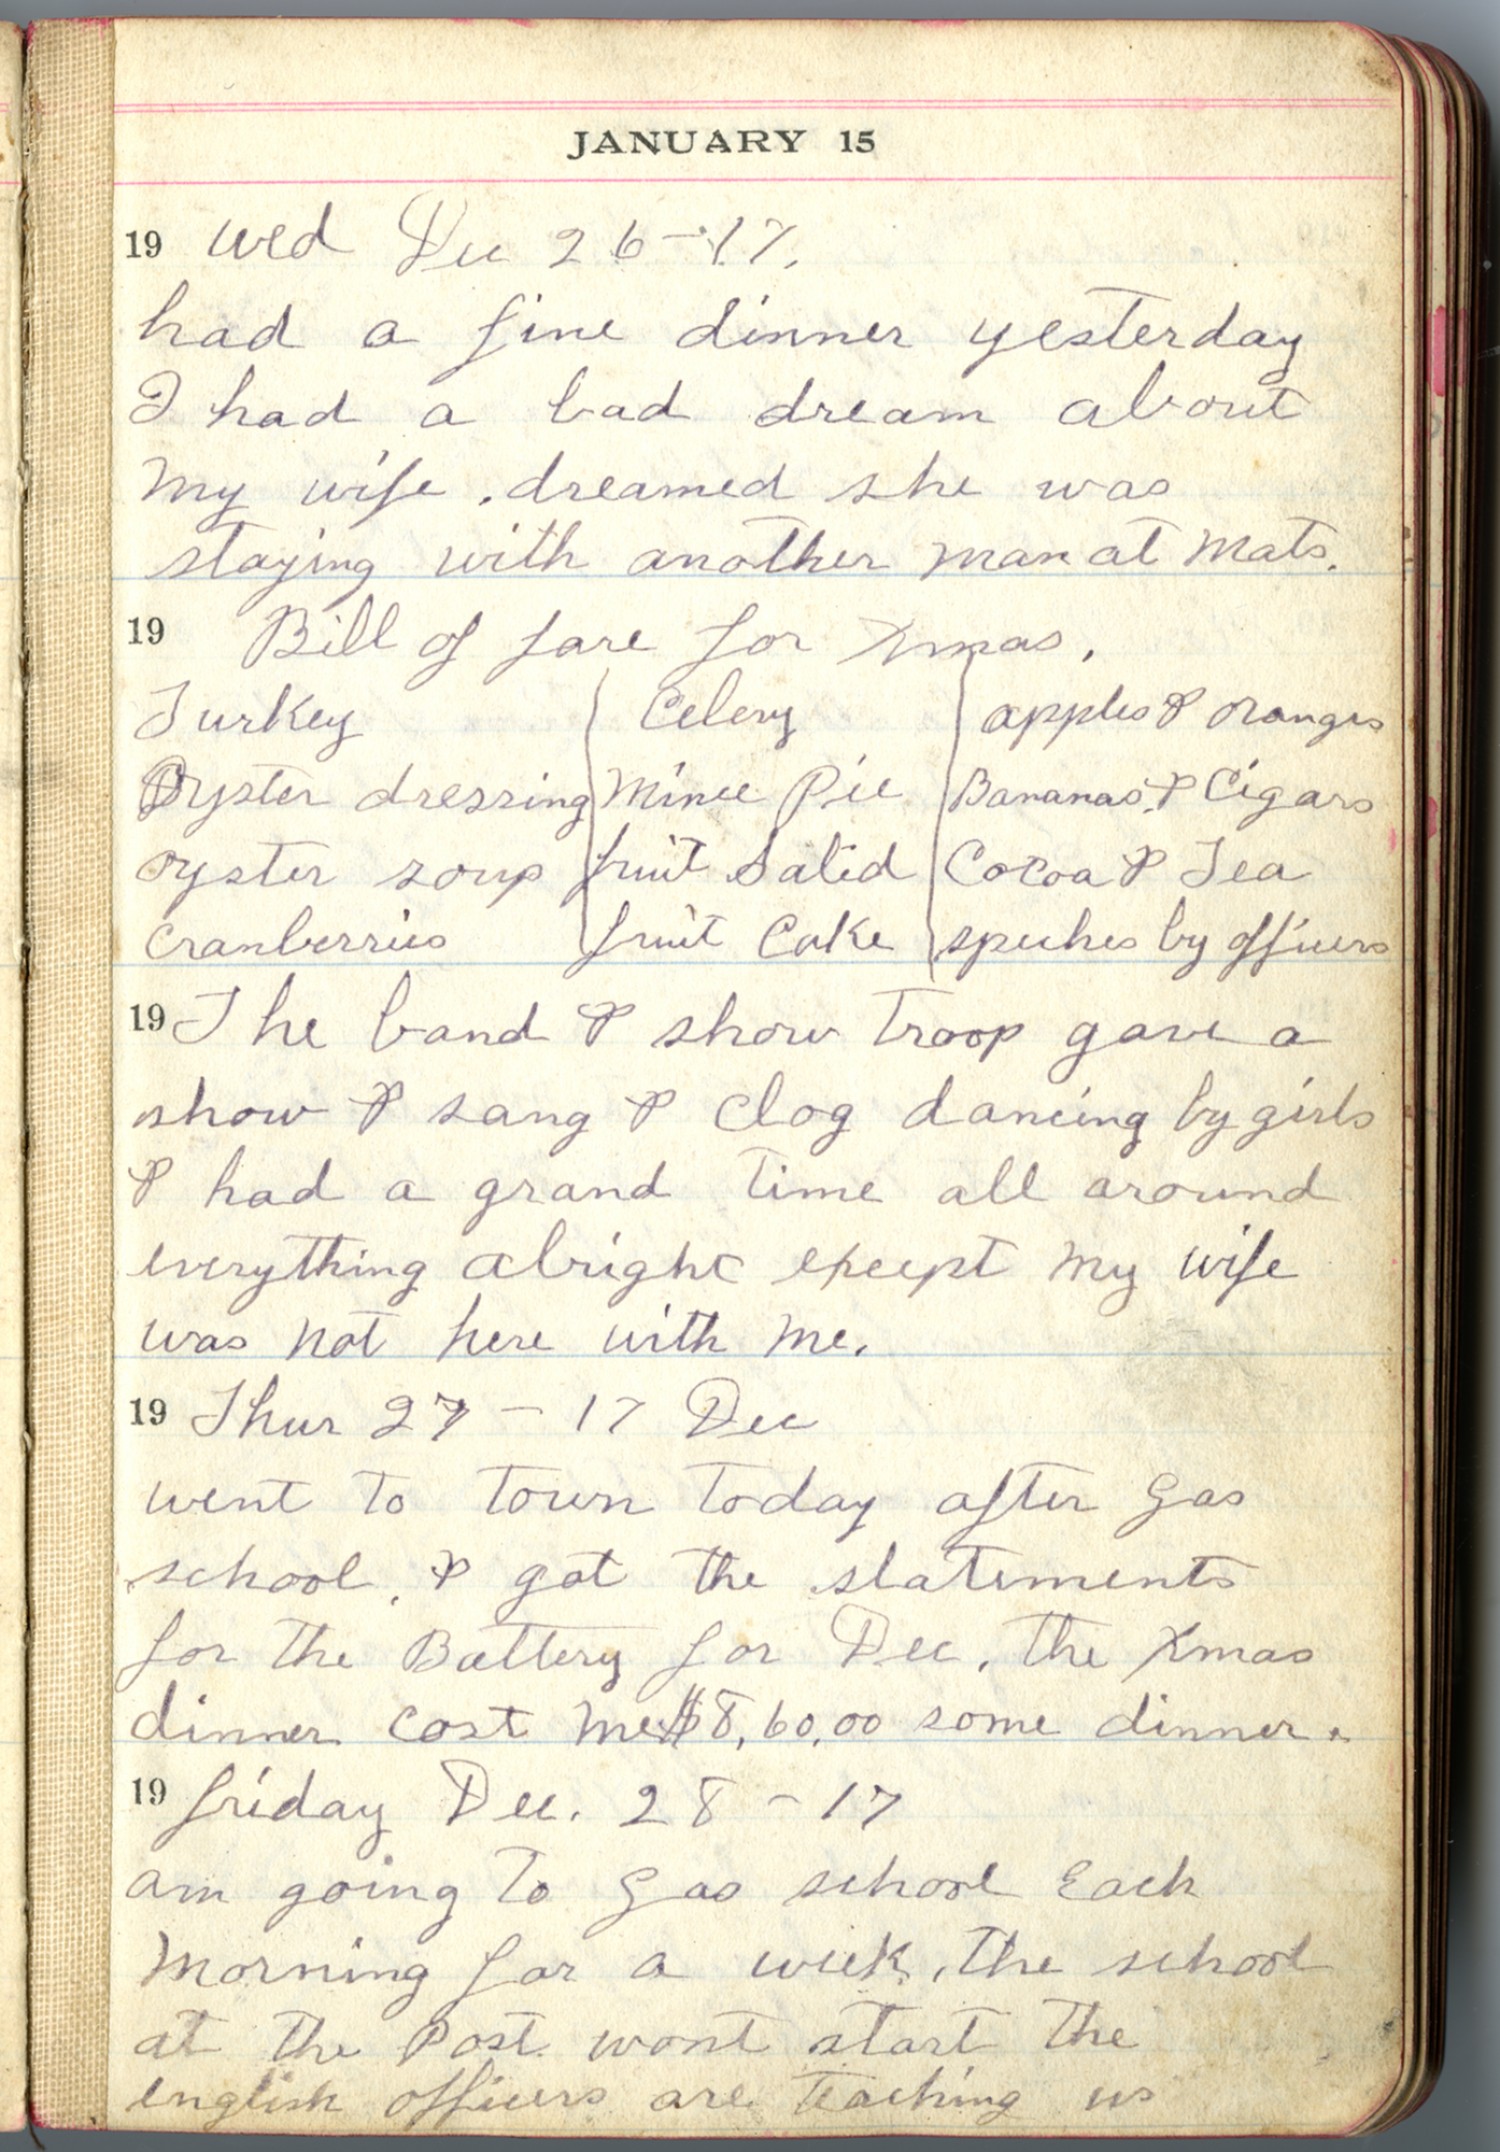 JANUARY 15
19 Wed Dec 26-17.
had a fine dinner yesterday
I had a bad dream about
my wife . dreamed she was
staying with another man at Mats.
19 Bill of fare for Xmas.
Turkey Celery apples & oranges
Oyster dressing Mince Pie Bananas & Cigars
oyster soup fruit Salid Cocoa & Tea
cranberries fruit Cake speches by officers
19 The band & show Troop gave a
show & sang & Clog dancing by girls
& had a grand time all around
everything alright except my wife
was not here with me.
19 Thur 27 - 17 Dec
went to town today after Gas
school, & got the statements
for the Battery for Dec, the Xmas
dinner cost me $8,60,00 some dinner.
19 friday Dec. 28 - 17
am going to Gas school Each
Morning for a week, the school
at the Post wont start the
english officers are teaching us